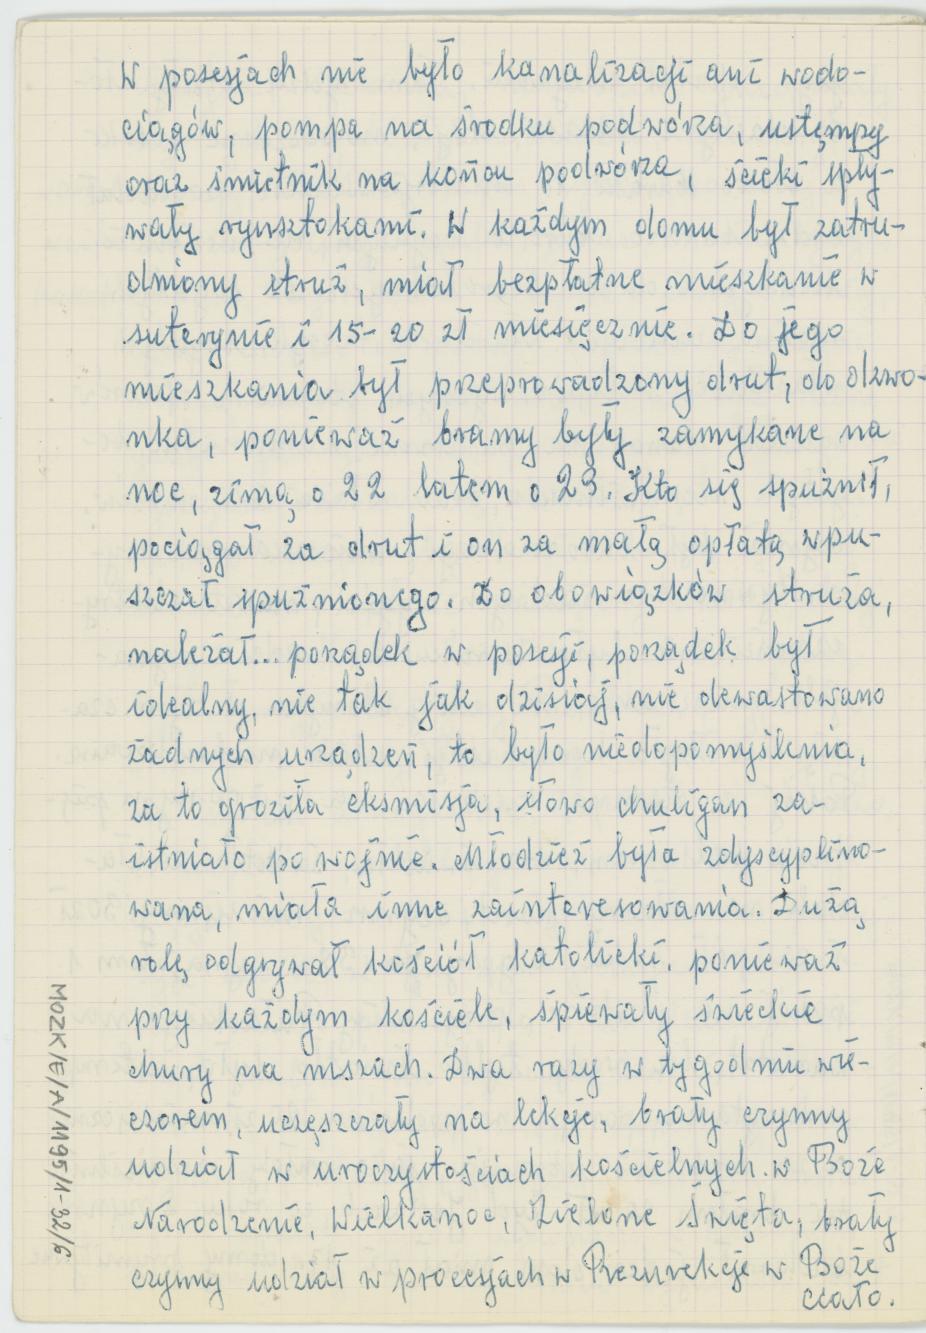 W posesjach nie było kanalizacji ani wodo-
ciągów, pompa na środku podwórza, ustępy
oraz śmietnik na końcu podwórza, ścieki spły-
wały rynsztokami. W każdym domu był zatru-
dniony struż, miał bezpłatne mieszkanie w
suterynie i 15-20 zł miesięcznie. Do jego
mieszkania był przeprowadzony drut, do dzwo-
nka, ponieważ bramy były zamykane na
noc, zimą o 22 latem o 23. Kto się spuźnił,
pociągał za drut i on za małą opłatą wpu-
szczał spuźnionego. Do obowiązków struża,
należał... porządek w posesji, porządek był
idealny, nie tak jak dzisiaj, nie dewastowano
żadnych urządzeń, to było niedopomyślenia,
za to groziła eksmisja, słowo chuligan za-
istniało po wojnie. Młodzież była zdyscyplino-
wana, miała inne zainteresowania. Dużą
rolę odgrywał kościół katolicki, ponieważ
przy każdym kościele, śpiewały świeckie
chury na mszach. Dwa razy w tygodniu wie-
czorem, uczęszczały na lekcje, brały czynny
udział w uroczystościach kościelnych. w Boże
Narodzenie, Wielkanoc, Zielone Święta, brały
czynny udział w procesjach w Rezurekcje w Boże
Ciało.
MOZK/E/A/1195/1-32/6